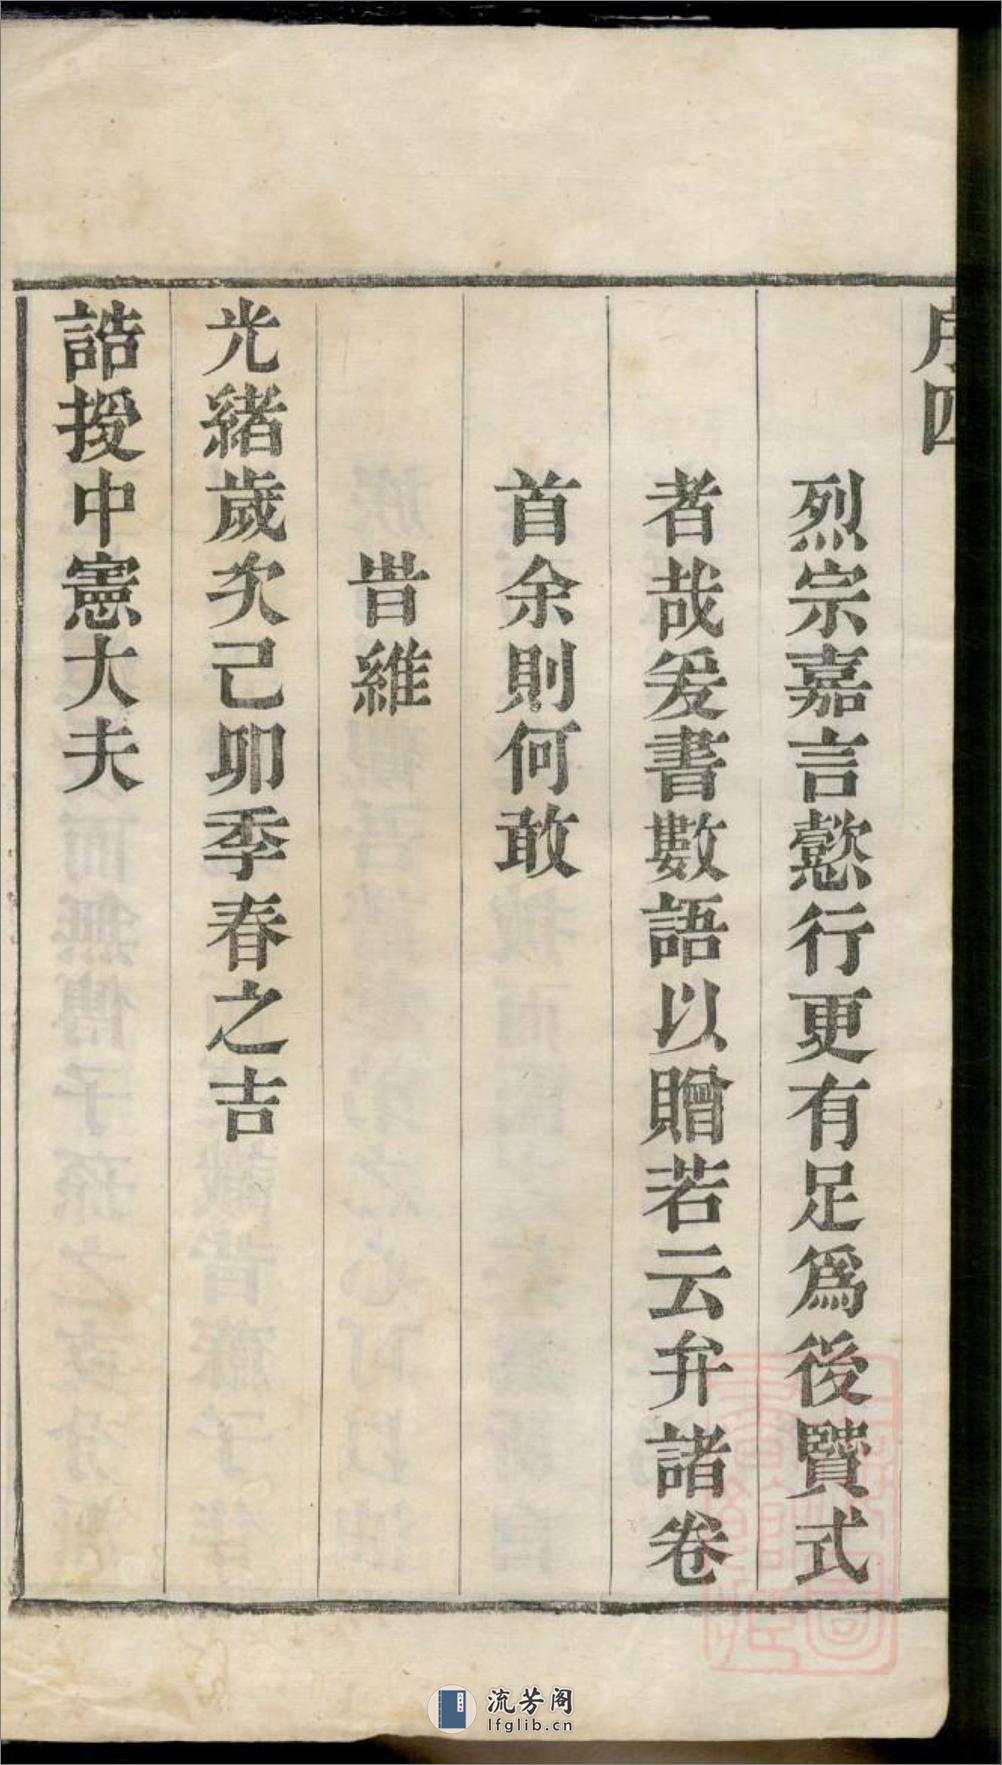 序四
烈宗嘉言懿行更有足爲後賢式
者哉爰書數語以贈若云弁諸卷
首余則何敢
昔維
光緒歲次己卯季春之吉
誥授中憲大夫
流芳阁
lfglib.cn